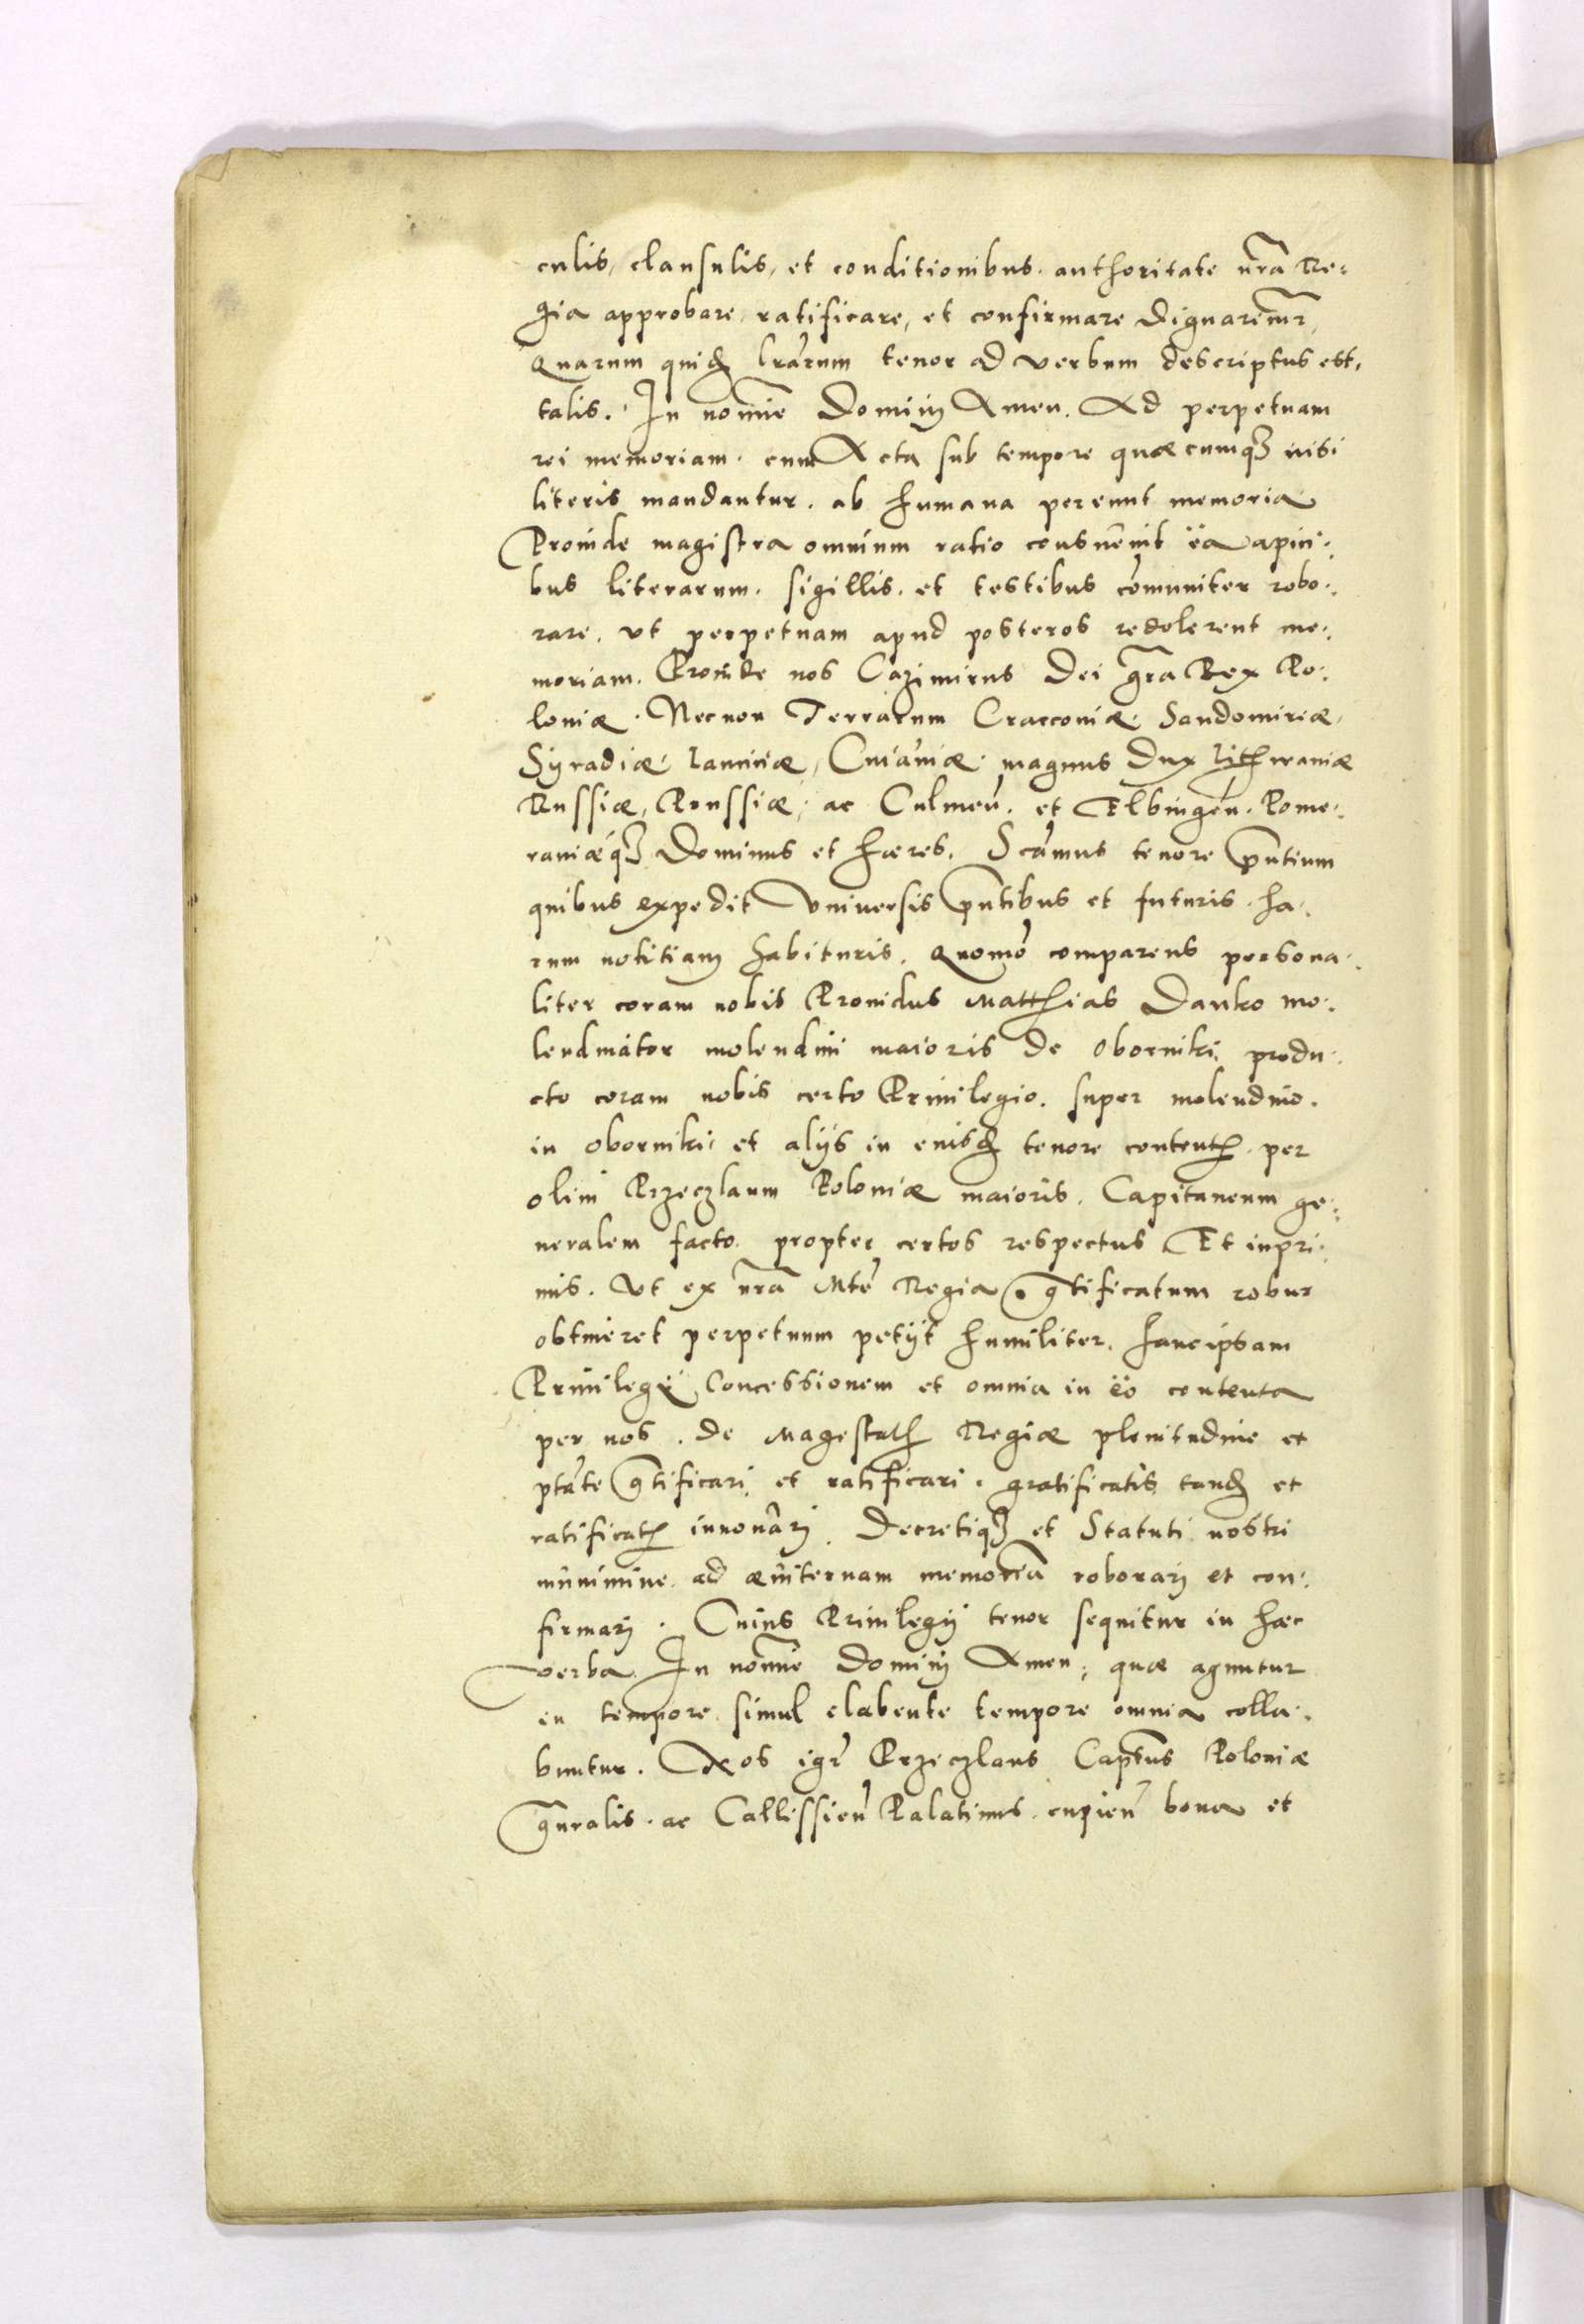 culis, clausulis, et conditionibus. authoritate nrã Re:
gia approbare ratificare, et confirmare dignaremur,
Quarum quid lrarum tenor ad verbum descriptus est,
talis. In nomīe Dominij Amen. Ad perpetuam
rei memoriam. cum Acta sub tempore quæcumq3 nisi
literis mandantur. ab humana pereunt memoria
Proinde magistra omnium ratio consueuit ëa apici:
bus literarum. sigillis. et testibus cõmuniter robo:
rare. vt perpetuam apud posteros redolerent me:
moriam. Proinde nos Cazimirus Dei gra Rex Po:
loniæ. Necnon Terrarum Cracconiæ. Sandomiriæ,
Syradiæ, Lanciciæ, Cuiauiæ. magnus Dux Lithwaniæ
Russiæ, Prussiæ. ac Culmeñ. et Elbingeñ. Pome:
raniæq3 Dominus et hæres. Scimus tenore pñtium
quibus expedit Vniuersis pñtibus et futuris. ha:
rum notitiam habituris. Quomõ comparens persona:
liter coram nobis Prouidus Matthias Danko mo:
lendinator molendini maioris de Oborniki produ:
cto coram nobis certo Priuilegio. super molendino.
in Oborniki et alijs in euisd tenore content per
olim Przeczlaum Poloniæ maioris. Capitaneum ge:
neralem facto. propter certos respectus Et inpri:
mis. Vt ex nrã Mte Regia gtificatum robur
obtineret perpetuum petijt humiliter. hancipsam
Priuilegij Concessionem et omnia in ëo contenta
per nos. de Magestat Regiæ plenitudine et
ptãte gtificari et ratificari. gratificatis tand et
ratificat innouari. Decretiq3 et Statuti nostri
munimine ad æuiternam memoriã roborari et con:
firmari. Cuius Priuilegij tenor sequitur in hæc
verba. In nomīe Dominij Amen, quæ aguntur
in tempore simul elabente tempore omnia colla:
buntur. Nos igr Przeczlaus Captus Poloniæ
gnralis. ac Callissieñ Palatinus. cupieñ bona et